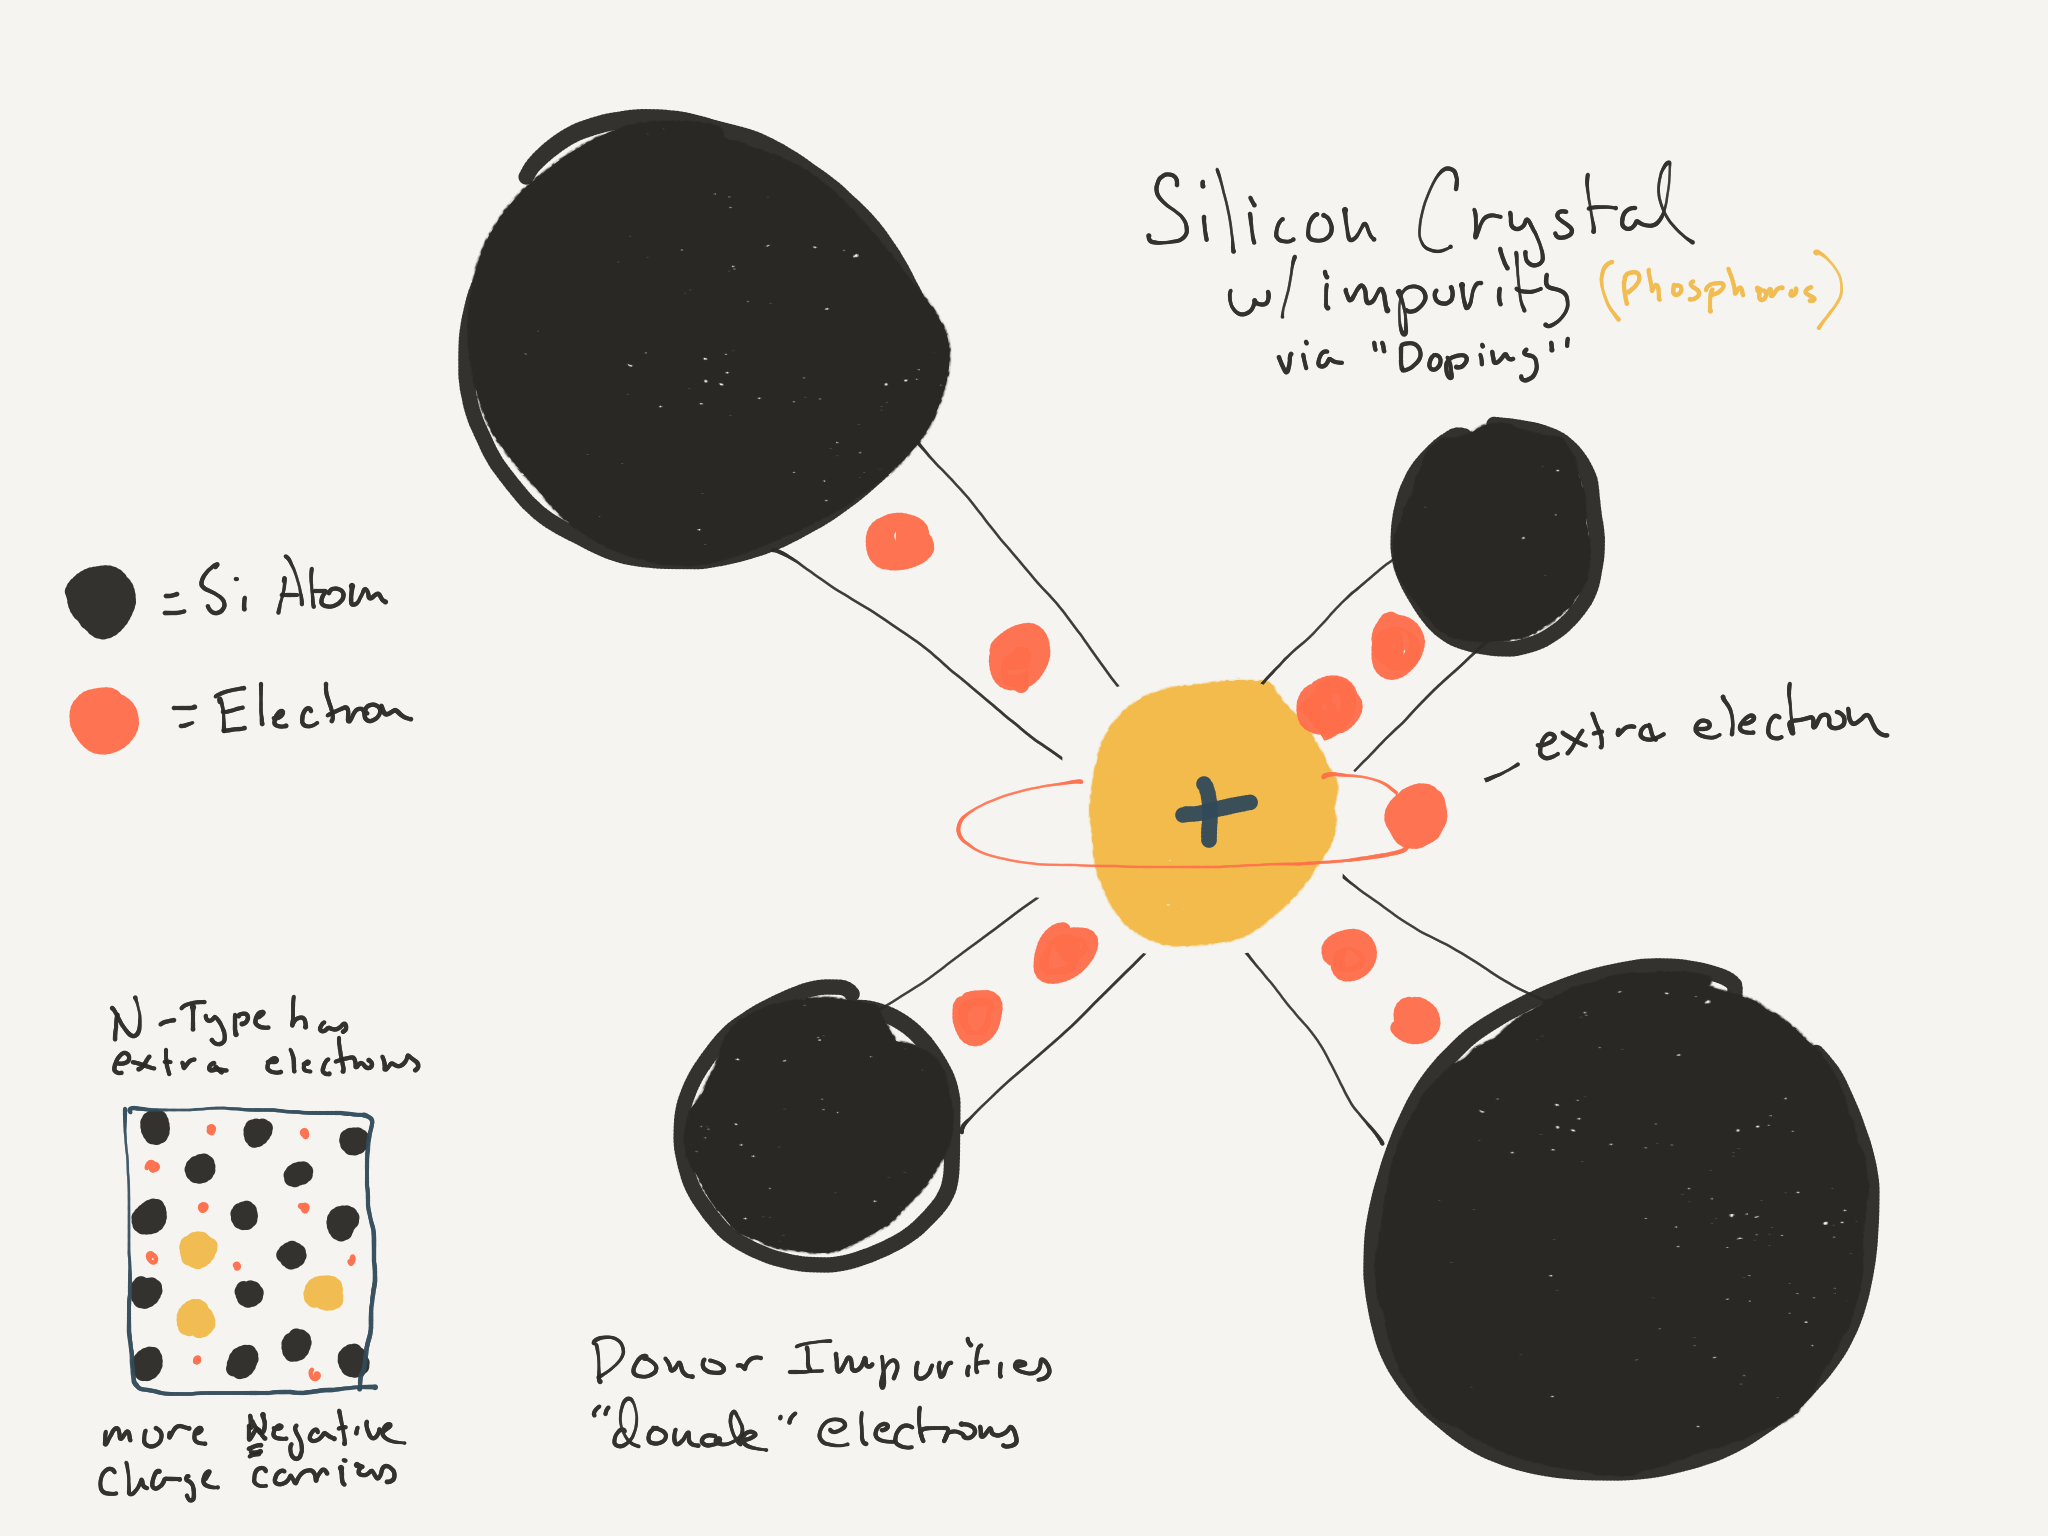 Silicon Crystal
w/ impurity (Phosphorus)
via "Doping"
= Si Atom
= Electron
extra electron
+
N-Type has
extra electrons
more Negative
charge carriers
Donor Impurities
"donate" electrons